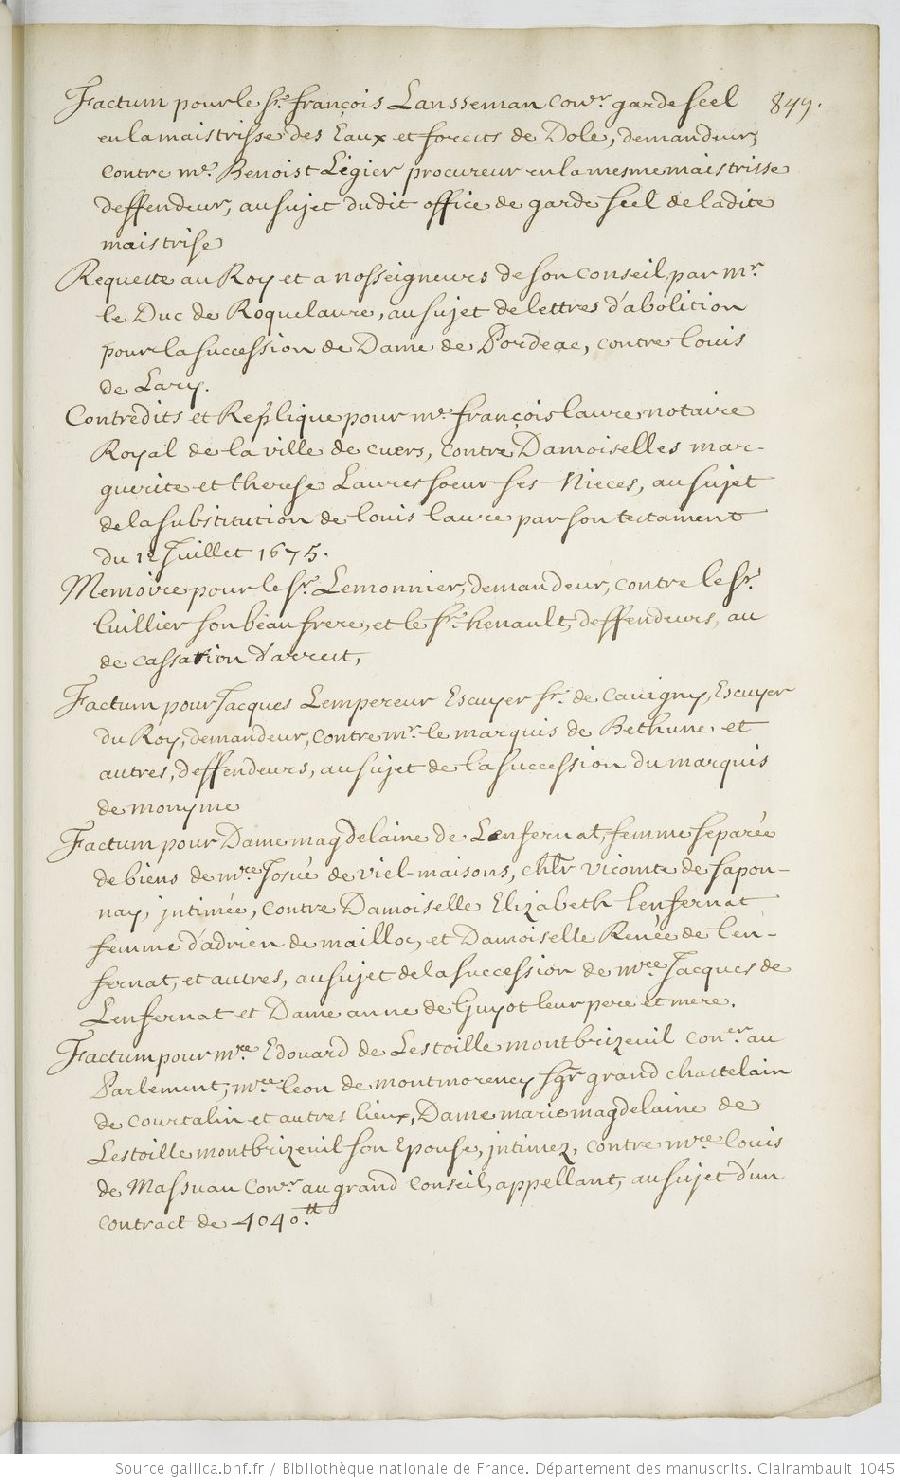 849.
Factum pour le Sr. françois Lansseman Conr. garde scel
en la maistrisse des Eaux et forests de Dole, demandeur,
contre me. Benoist Ligier procureur en la mesme maistrisse
deffendeur, au sujet dudit office de garde scel de ladite
maistrise
Requeste au Roy et a nosseigneurs de son Conseil, par mr
le Duc de Roquelaure, au sujet de lettres d'abolition
pour la succession de Dame de Pordeac, contre louis
de Lary.
Contredits et Replique pour me. françois laure notaire
Royal de la ville de cuers, contre Damoiselles mar-
guerite et therese Laures soeur ses Nieces, au sujet
de la substitution de louis laure par son testament
du 12 Juillet 1675.
Memoire pour le Sr. Lemonnier, demandeur, contre le Sr.
luillier son beau frere, et le Sr. henault, deffendeurs, au
de cassation d'arrest,
Factum pour Jacques Lempereur Escuyer Sr. de Cauigny, Escuyer
du Roy, demandeur, contre mr. le marquis de Bethune, et
autres, deffendeurs, au sujet de la succession du marquis
de monyme
Factum pour Dame magdelaine de Lenfernat, femme separée
de biens de mre Josué de viel-maisons, chlr vicomte de sapon-
nay, intimée, contre Damoiselle Elizabeth lenfernat
femme d'adrien de mailloc, et Damoiselle Renée de len-
fernat, et autres, au sujet de la succession de mre Jacques de
Lenfernat et Dame anne de Guyot leur pere et mere.
Factum pour mre Edouard de Lestoille montbrizeuil coner au
Parlement; mre leon de montmorency sgr grand chastelain
de Courtalin et autres lieux, Dame marie magdelaine de
Lestoille montbrizeuil son Epouse, intimez, contre mre louis
de Massuau Conr. au grand Conseil, appellant, au sujet d'un
contract de 4040.tt
Source gallica.bnf.fr / Bibliothèque nationale de France. Département des manuscrits. Clairambault 1045